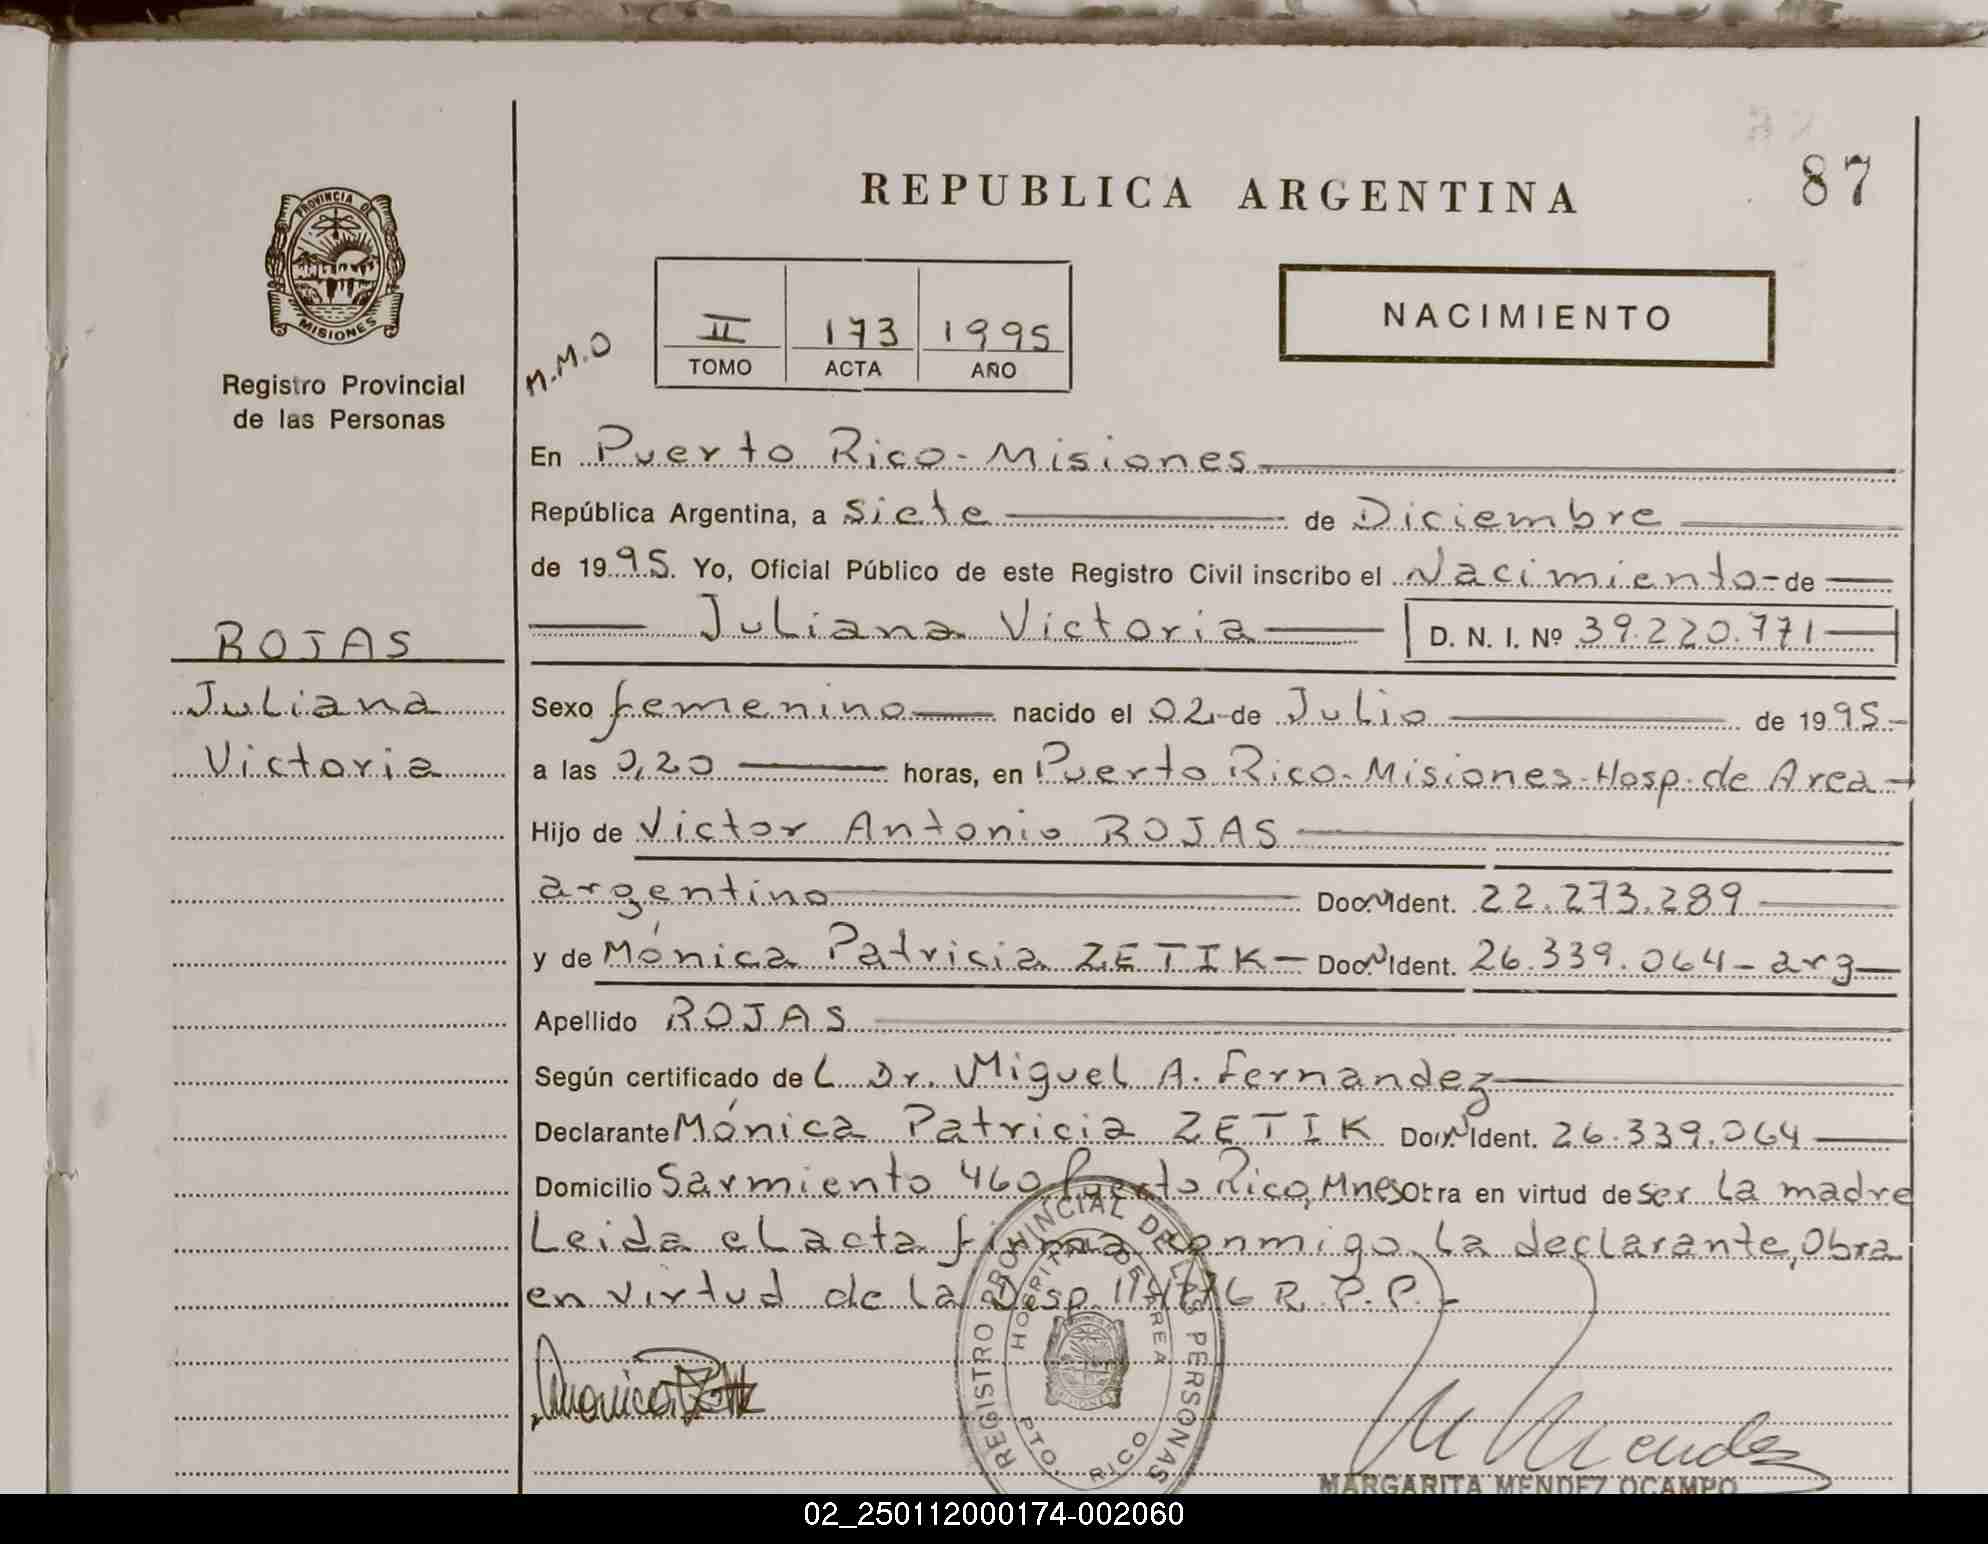 REPUBLICA ARGENTINA
87
PROVINCIA DE
MISIONES
Registro Provincial
de las Personas
NACIMIENTO
M.M.O
II 173 1995
TOMO ACTA AÑO
En Puerto Rico - Misiones
República Argentina, a siete de Diciembre
de 1995. Yo, Oficial Público de este Registro Civil inscribo el Nacimiento - de
Juliana Victoria D. N. I. Nº 39.220.771
ROJAS
Juliana
Victoria
Sexo femenino nacido el 02 de Julio de 1995
a las 0,20 horas, en Puerto Rico - Misiones - Hosp. de Area
Hijo de Victor Antonio ROJAS
argentino Doc. Ident. 22.273.289
y de Mónica Patricia ZETIK - Doc. Ident. 26.339.064 - arg
Apellido ROJAS
Según certificado del Dr. Miguel A. Fernandez
Declarante Mónica Patricia ZETIK Doc. Ident. 26.339.064
Domicilio Sarmiento 460 Puerto Rico, Mnes obra en virtud de ser la madre
Leida el acta firma conmigo la declarante, Obra
en virtud de la Disp. R.P.P.-
REGISTRO PROVINCIAL DE LAS PERSONAS
HOSPITAL DE AREA
PTO. RICO
M Mendez
MARGARITA MENDEZ OCAMPO
02_250112000174-002060